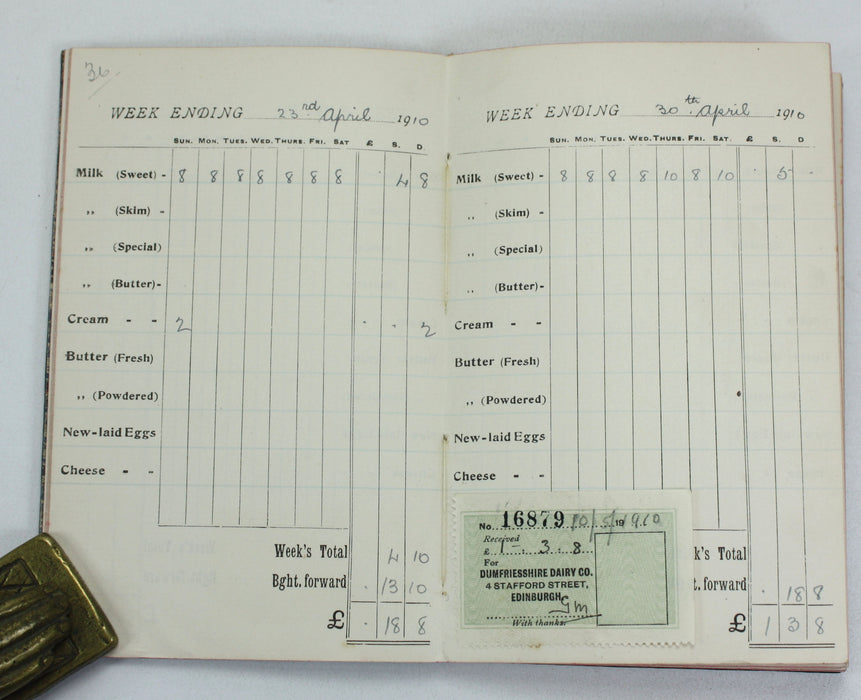 36
WEEK ENDING 23rd April 1910
SUN. MON. TUES. WED. THURS. FRI. SAT £ S. D.
Milk (Sweet) - 8 8 8 8 8 8 8 . 4 8
„ (Skim) -
„ (Special)
„ (Butter) -
Cream - - 2 . . 2
Butter (Fresh)
„ (Powdered)
New-laid Eggs
Cheese - -
Week's Total 4 10
Bght. forward . 13 10
£ . 18 8
WEEK ENDING 30th April 1910
SUN. MON. TUES. WED. THURS. FRI. SAT. £ S. D
Milk (Sweet) - 8 8 8 8 10 8 10 . 5 .
„ (Skim) -
„ (Special)
„ (Butter) -
Cream - -
Butter (Fresh)
„ (Powdered)
New-laid Eggs
Cheese - -
k's Total
t. forward . 18 8
£ 1 3 8
No. 16879 10/5/1910
Received
£ 1 - : 3 . 8
For
DUMFRIESSHIRE DAIRY CO.
4 STAFFORD STREET,
EDINBURGH
GM
With thanks.